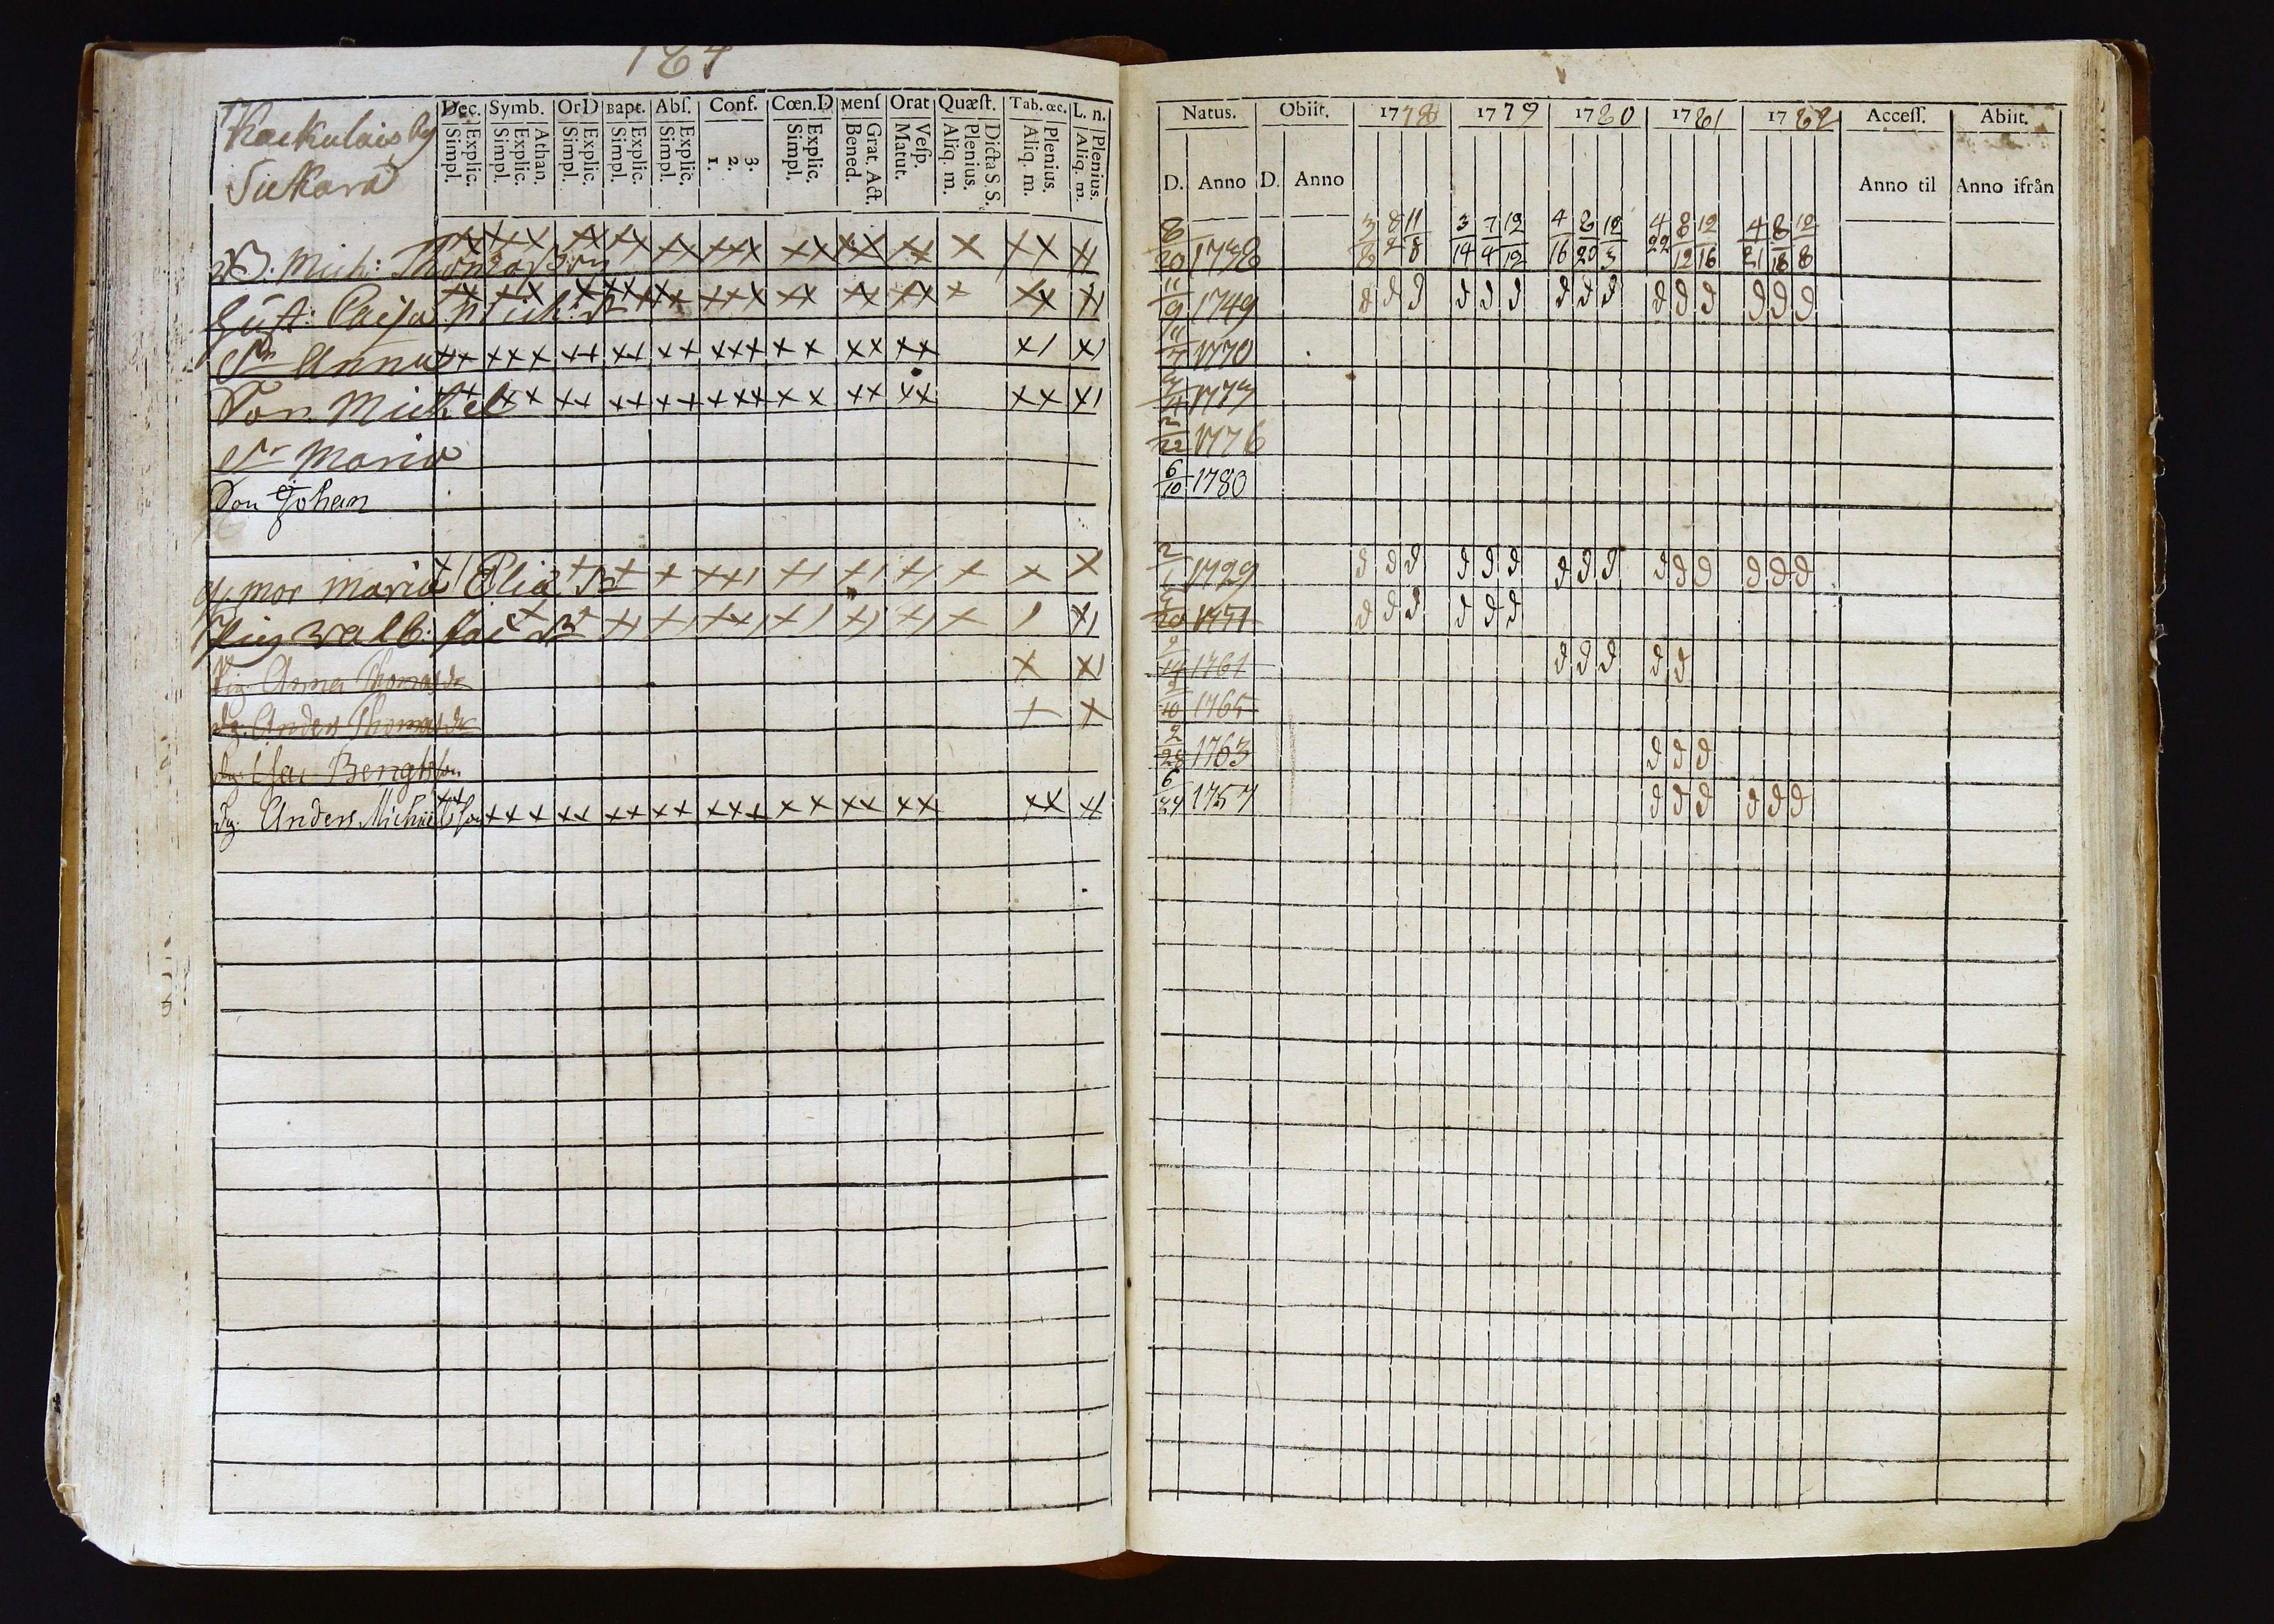 164
Kackulais by
Siukara
Dec. Symb. OrD Bapt. Abſ. Conf. Cœn.D Menſ Orat Quæſt. Tab. œc. L. n.
Simpl. Explic. Simpl. Explic. Athan. Simpl. Explic. Simpl. Explic. Simpl. Explic. 1. 2. 3. Simpl. Explic. Bened. Grat. Act. Matut. Veſp. Aliq. m. Plenius. Dicta S.S. Aliq. m. Plenius. Aliq. m. Plenius.
B. Mich: Thomasson
Hust: Caisa Mich: dr
dr Anna
Son Michel
dr Maria
Son Johan
mor Maria Elia dr
Pig Walb: Jac dr
Pig Anna Thomas dr
dg. Anders Thomas
dg. Isac Bengtsson
dg. Anders Michielsson
Natus. Obiit. 1778 1779 1780 1781 1782 Acceſſ. Abiit.
D. Anno D. Anno Anno til Anno ifrån
3 8 11 3 7 12 4 8 12 4 8 12 4 8 12
8/20 1738 8 2 8 14 4 12 16 20 3 22 12 16 21 18 8
11/9 1749 d d d d d d d d d d d d d d d
11/7 1770
1773
2/22 1776
6/10 1780
2/1 1729 d d d d d d d d d d d d d d d
20 1751 d d d d d d
2/14 1761 d d d d d
10 1765
2/28 1763 d d d
6/24 1757 d d d d d d